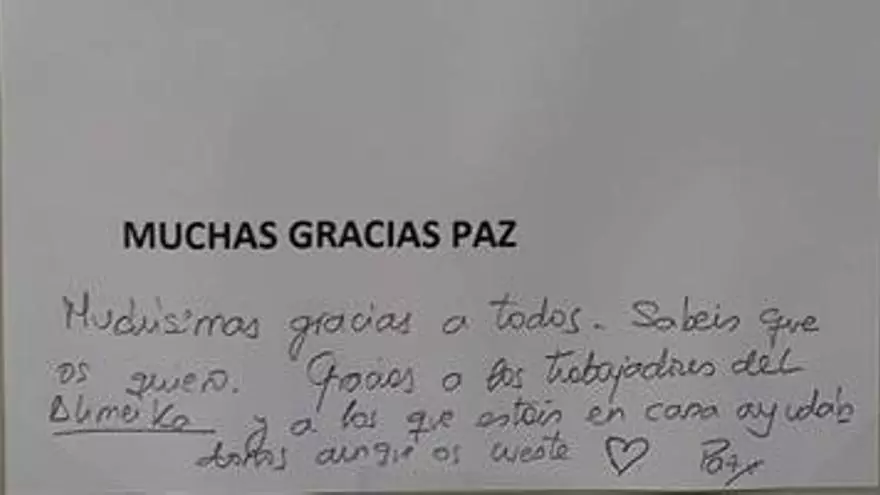 MUCHAS GRACIAS PAZ
Muchísimas gracias a todos. Sabeis que
os quiero. Gracias a los trabajadores del
y a los que estáis en casa ayudán
donos aunque os cueste ♡ Paz